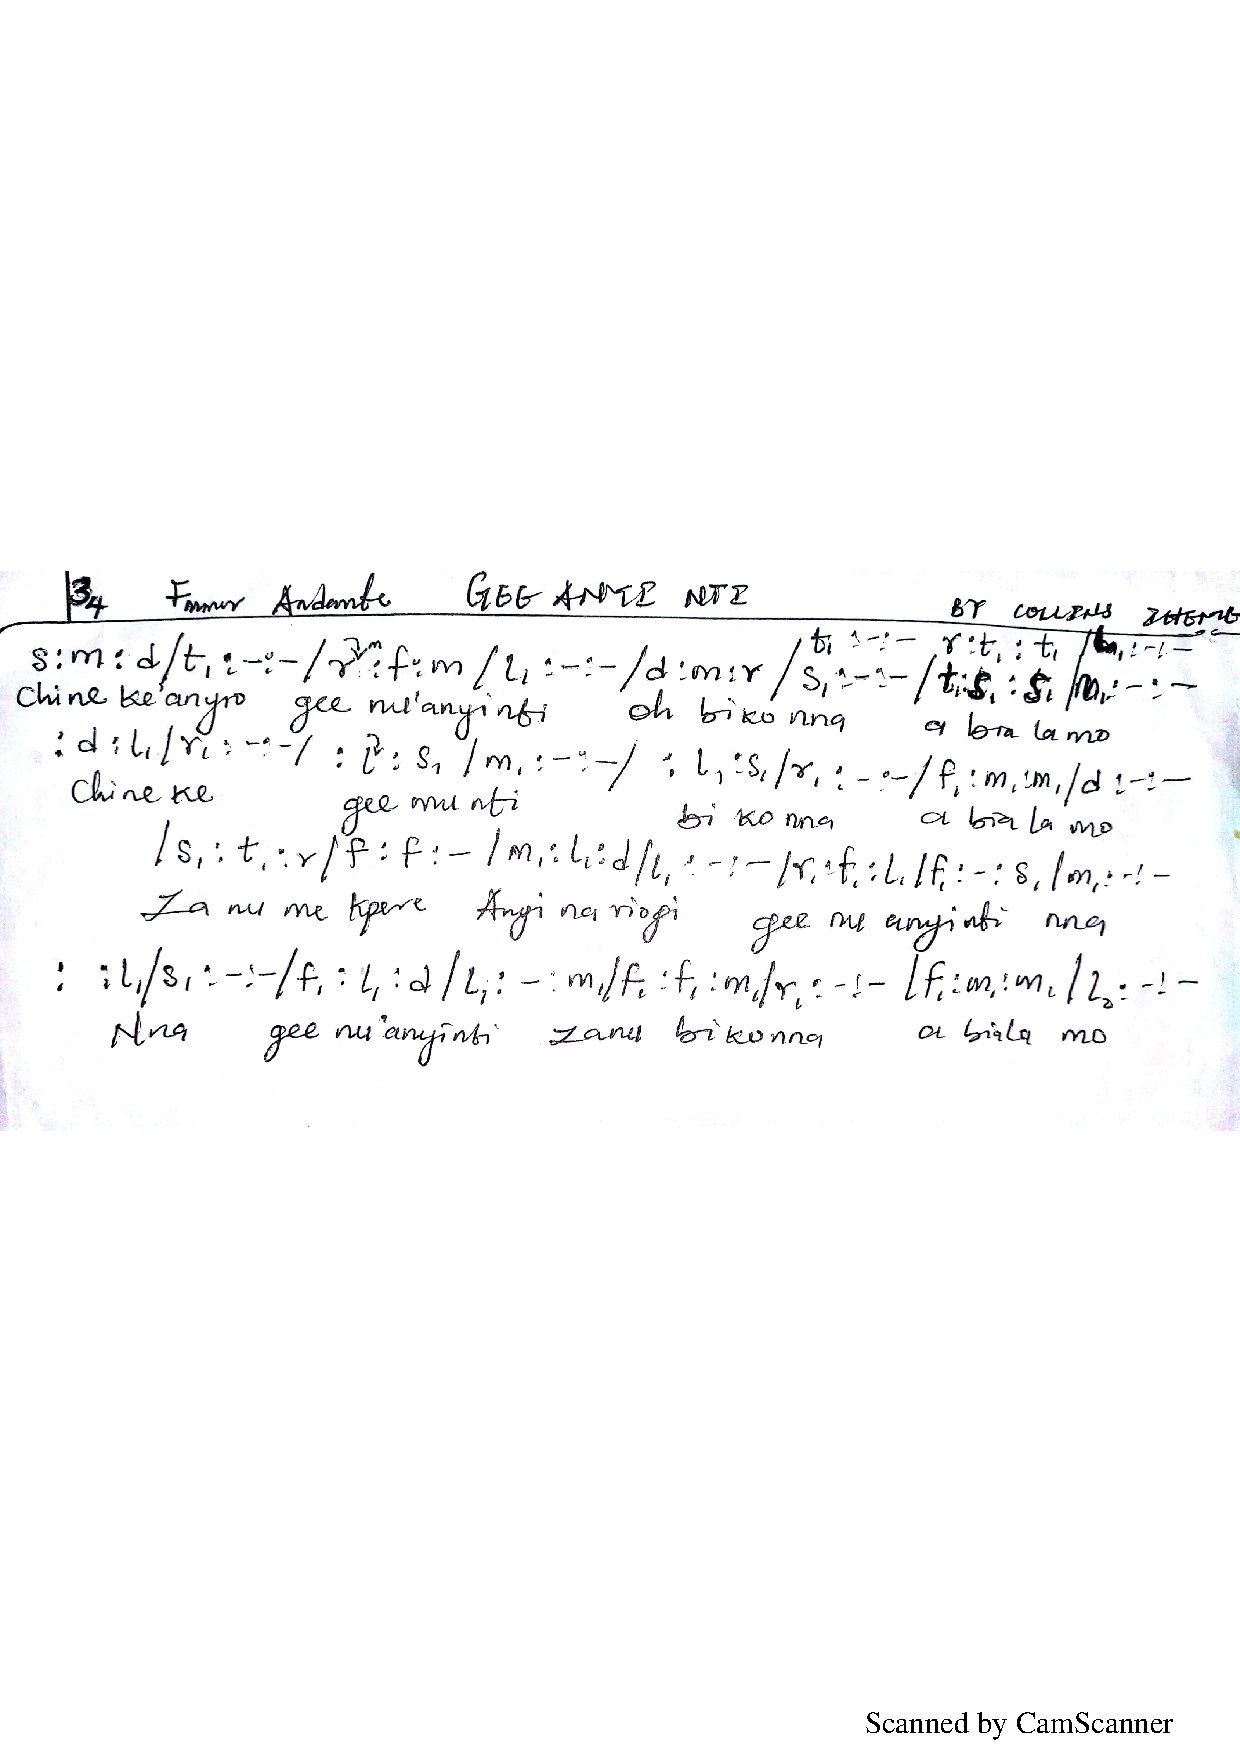 3/4 Fminor Andante GEE ANYI NTI
BY COLLINS IHEME
t₁ :-:- r:t₁ : t₁ / :-:-
s:m:d/t₁ :-:-/ :f:m / l₁ :-:-/d:m:r / s₁ :-:-/t₁:s₁ : s₁ /m₁:-:-
Chineke'anyro gee nu'anyinti oh biko nna a bia la mo
: d : l₁/r₁ : -:-/ : : s₁ /m₁ :-:-/ : l₁ :s₁/r₁ : -:-/ f₁:m₁:m₁/d :-:-
Chineke gee nu nti bi ko nna a bia la mo
/s₁ : t₁ : r/f : f : - /m₁ : l₁ : d/l₁ : -:-/r₁ : f₁ : l₁/f₁ : - : s₁ /m₁ : -:-
Za nu me kpere Anyi na riogi gee nu anyinti nna
: : l₁/s₁ : -:-/f₁ : l₁ : d/l₁ : - : m₁/f₁ : f₁ : m₁/r₁ : -:- /f₁ : m₁ : m₁ /l₂ : -:-
Nna gee nu'anyinti zanu bikonna a biala mo
Scanned by CamScanner